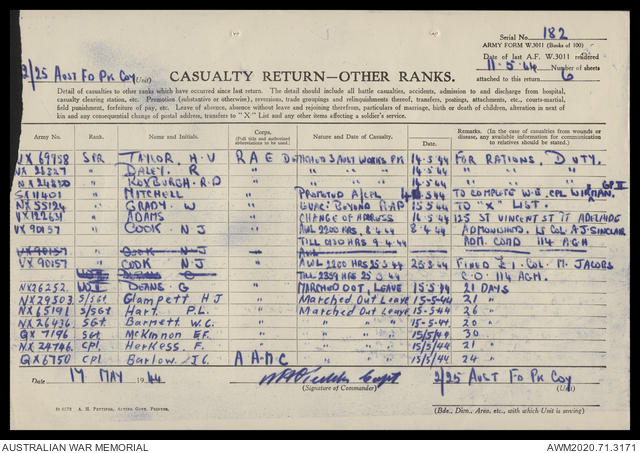 Serial No. 182
ARMY FORM W.3011 (Books of 100)
Date of last A.F. W.3011 rendered
11.5.44 Number of sheets
attached to this return 6
2/25 Aust Fd Pk Coy (Unit)
CASUALTY RETURN—OTHER RANKS.
Detail of casualties to other ranks which have occurred since last return. The detail should include all battle casualties, accidents, admission to and discharge from hospital,
casualty clearing station, etc. Promotion (substantive or otherwise), reversions, trade groupings and relinquishments thereof, transfers, postings, attachments, etc., courts-martial,
field punishment, forfeiture of pay, etc. Leave of absence, absence without leave and rejoining therefrom, particulars of marriage, birth or death of children, alteration in next
of kin and any consequential change of postal address, transfers to "X" List and any other items affecting a soldier's service.
Army No. Rank. Name and Initials. Corps. (Full title and authorized abbreviations to be used.) Nature and Date of Casualty. Date. Remarks. (In the case of casualties from wounds or disease, any available information for communication to relatives should be stated.)
VX69958 SPR TAYLOR, H.V RAE Detached 3 Aust Works Pk 14-5-44 FOR RATIONS, DUTY.
" DALEY. R " " " 14.5.44 " "
" ROXBURGH. R.D " " " 14.5.44 " " GP II
SX11401 " MITCHELL " PROMOTED A/CPL TO COMPLETE W.E. CPL
NX55124 " GRADY. W " EVAC: BEYOND RAP 15.5.44 TO "X" LIST.
VX122631 " ADAMS " CHANGE OF ADDRESS 16.5.44 125 ST VINCENT ST PT ADELAIDE
VX90157 " COOK N J " AWL 2200 HRS, 8.4.44 8.4.44 ADMONISHED. Lt Col A.J. SINCLAIR
TILL 0130 HRS 9.4.44 ADM. COMD 114 AGH
VX90157 " COOK N J " AWL
VX90157 " COOK N J " AWL 1200 HRS 25.3.44 25.3.44 FINED £1. COL. M. JACOBS
TILL 2359 HRS 25.3.44 C.O. 114 AGH.
NX26252. DEANS. G " MARCHED OUT, LEAVE 15.5.44 21 DAYS
NX29503 S/Sgt Clampett H J " Marched Out Leave 15-5-44 21 "
NX65191 S/SGT Hart. P.L. " Marched Out Leave 15.5.44 26 "
NX26436 SGT. Barnett W.C. " " " 15-5-44 20 "
QX7196 Sgt McKinnon E.F. " " " 15/5/44 30 "
NX24746 CPL Herkess. F. " " " 15/5/44 21 "
QX6750 CPL Barlow J.C. AAMC " " 15/5/44 24 "
Date 17 MAY 1944
(Signature of Commander)
2/25 Aust Fd Pk Coy
(Unit)
(Bde., Divn., Area, etc., with which Unit is serving)
A. H. PETTIFER, ACTING GOVT. PRINTER.
AUSTRALIAN WAR MEMORIAL AWM2020.71.3171